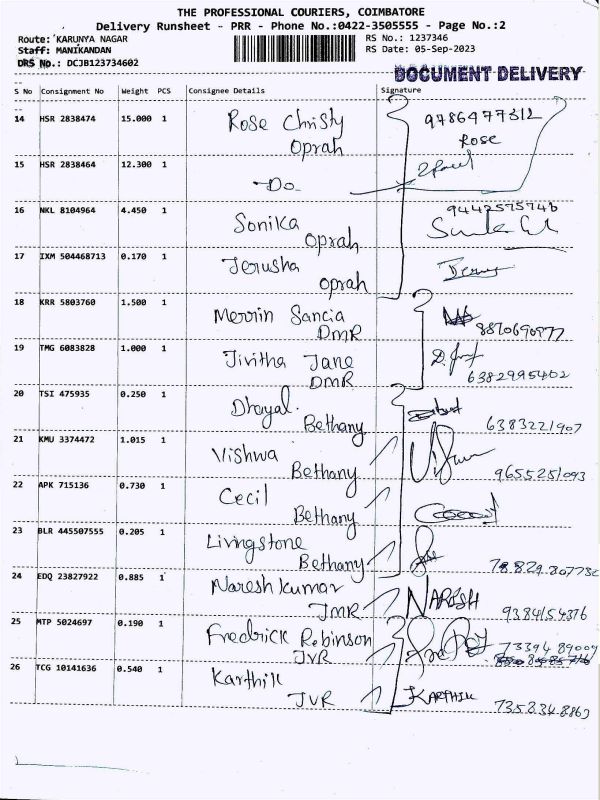 THE PROFESSIONAL COURIERS, COIMBATORE
Delivery Runsheet - PRR - Phone No.:0422-3505555 - Page No.:2
Route: KARUNYA NAGAR
RS No.: 1237346
Staff: MANIKANDAN
RS Date: 05-Sep-2023
DRS No.: DCJB123734602
DOCUMENT DELIVERY
S No Consignment No Weight PCS Consignee Details Signature
14 HSR 2838474 15.000 1 Rose Christy 9786477312
Oprah Rose
15 HSR 2838464 12.300 1
Do
16 NKL 8104964 4.450 1 Sonika 9442575746
Oprah
17 IXM 504468713 0.170 1 Jerusha
Oprah
18 KRR 5803760 1.500 1 Merrin Sancia
DMR 8870690977
19 TMG 6083828 1.000 1 Jivitha Jane
DMR 6382995402
20 TSI 475935 0.250 1 Dhayal.
Bethany 6383221907
21 KMU 3374472 1.015 1 Vishwa
Bethany 9655251093
22 APK 715136 0.730 1 Cecil
Bethany
23 BLR 445507555 0.205 1 Livingstone
Bethany
24 EDQ 23827922 0.885 1 Naresh kumar NARESH
JMR 9384154376
25 MTP 5024697 0.190 1 Fredrick Robinson
JVR 7339489009
26 TCG 10141636 0.540 1 Karthik KARTHIK
JVR 7358348869